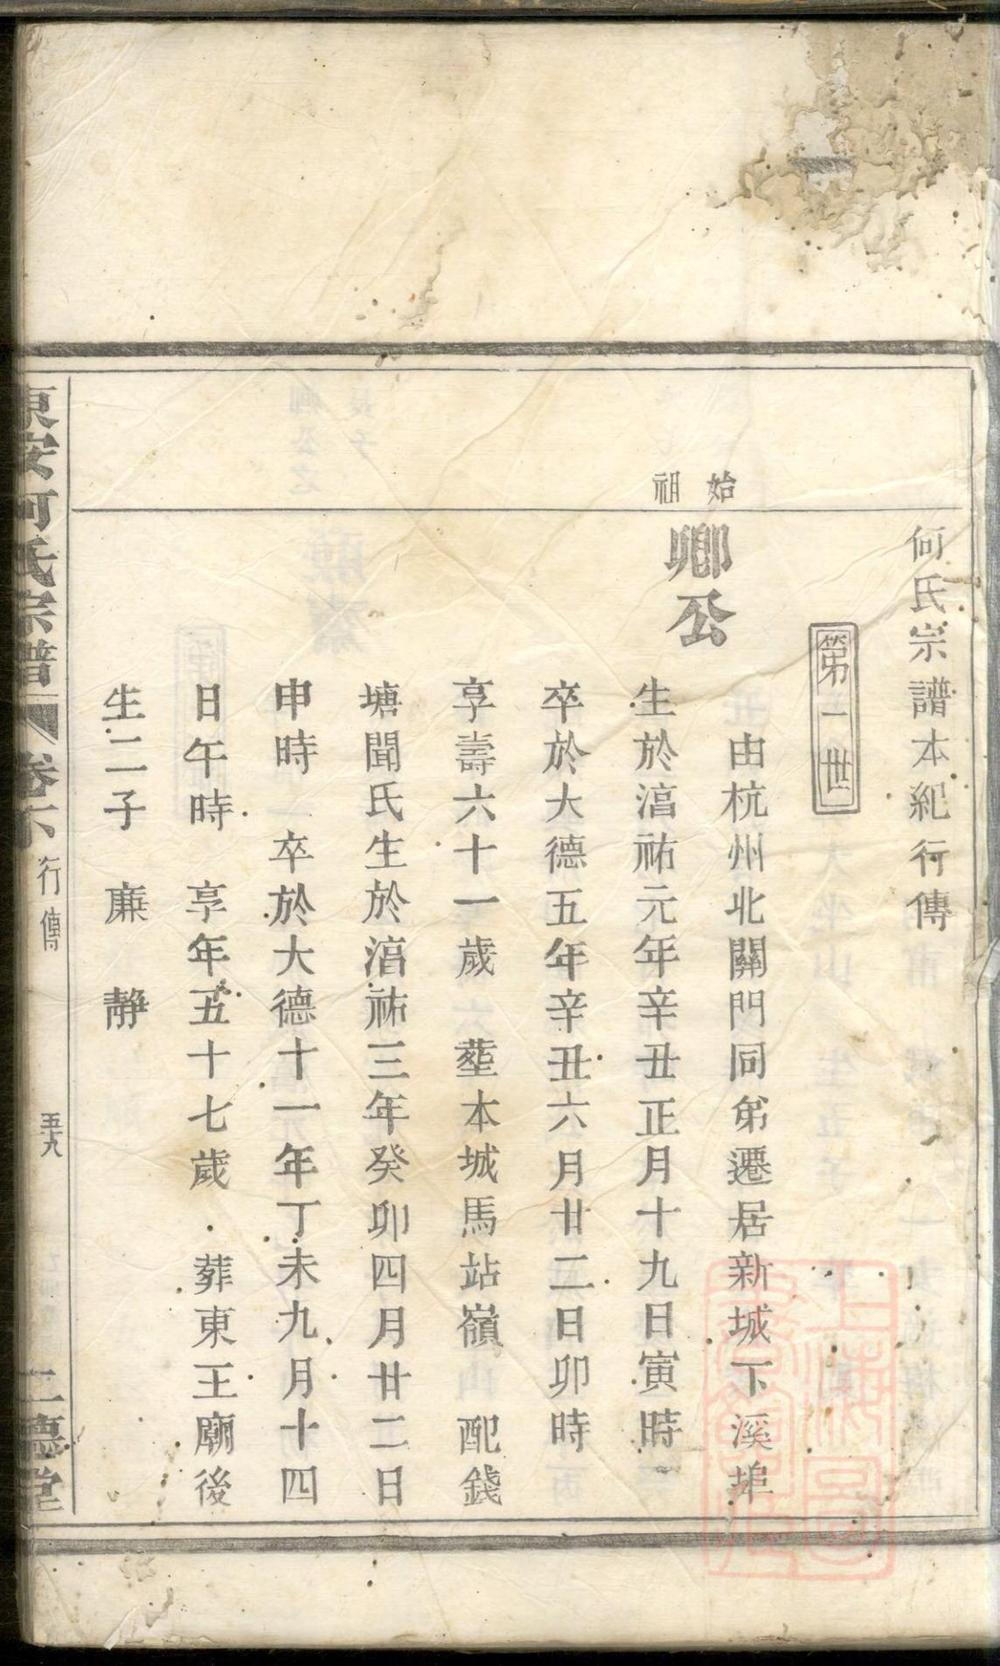 何氏宗譜本紀行傳
第一世
始祖
卿公
由杭州北關門同弟遷居新城下溪埠
生於湻祐元年辛丑正月十九日寅時
卒於大德五年辛丑六月廿二日卯時
享壽六十一歲 塟本城馬站嶺 配錢
塘聞氏生於湻祐三年癸卯四月廿二日
申時 卒於大德十一年丁未九月十四
日午時 享年五十七歲 葬東王廟後
生二子 亷 靜
東安何氏宗譜 卷下 行傳 五十八 二德堂
上海圖書館藏